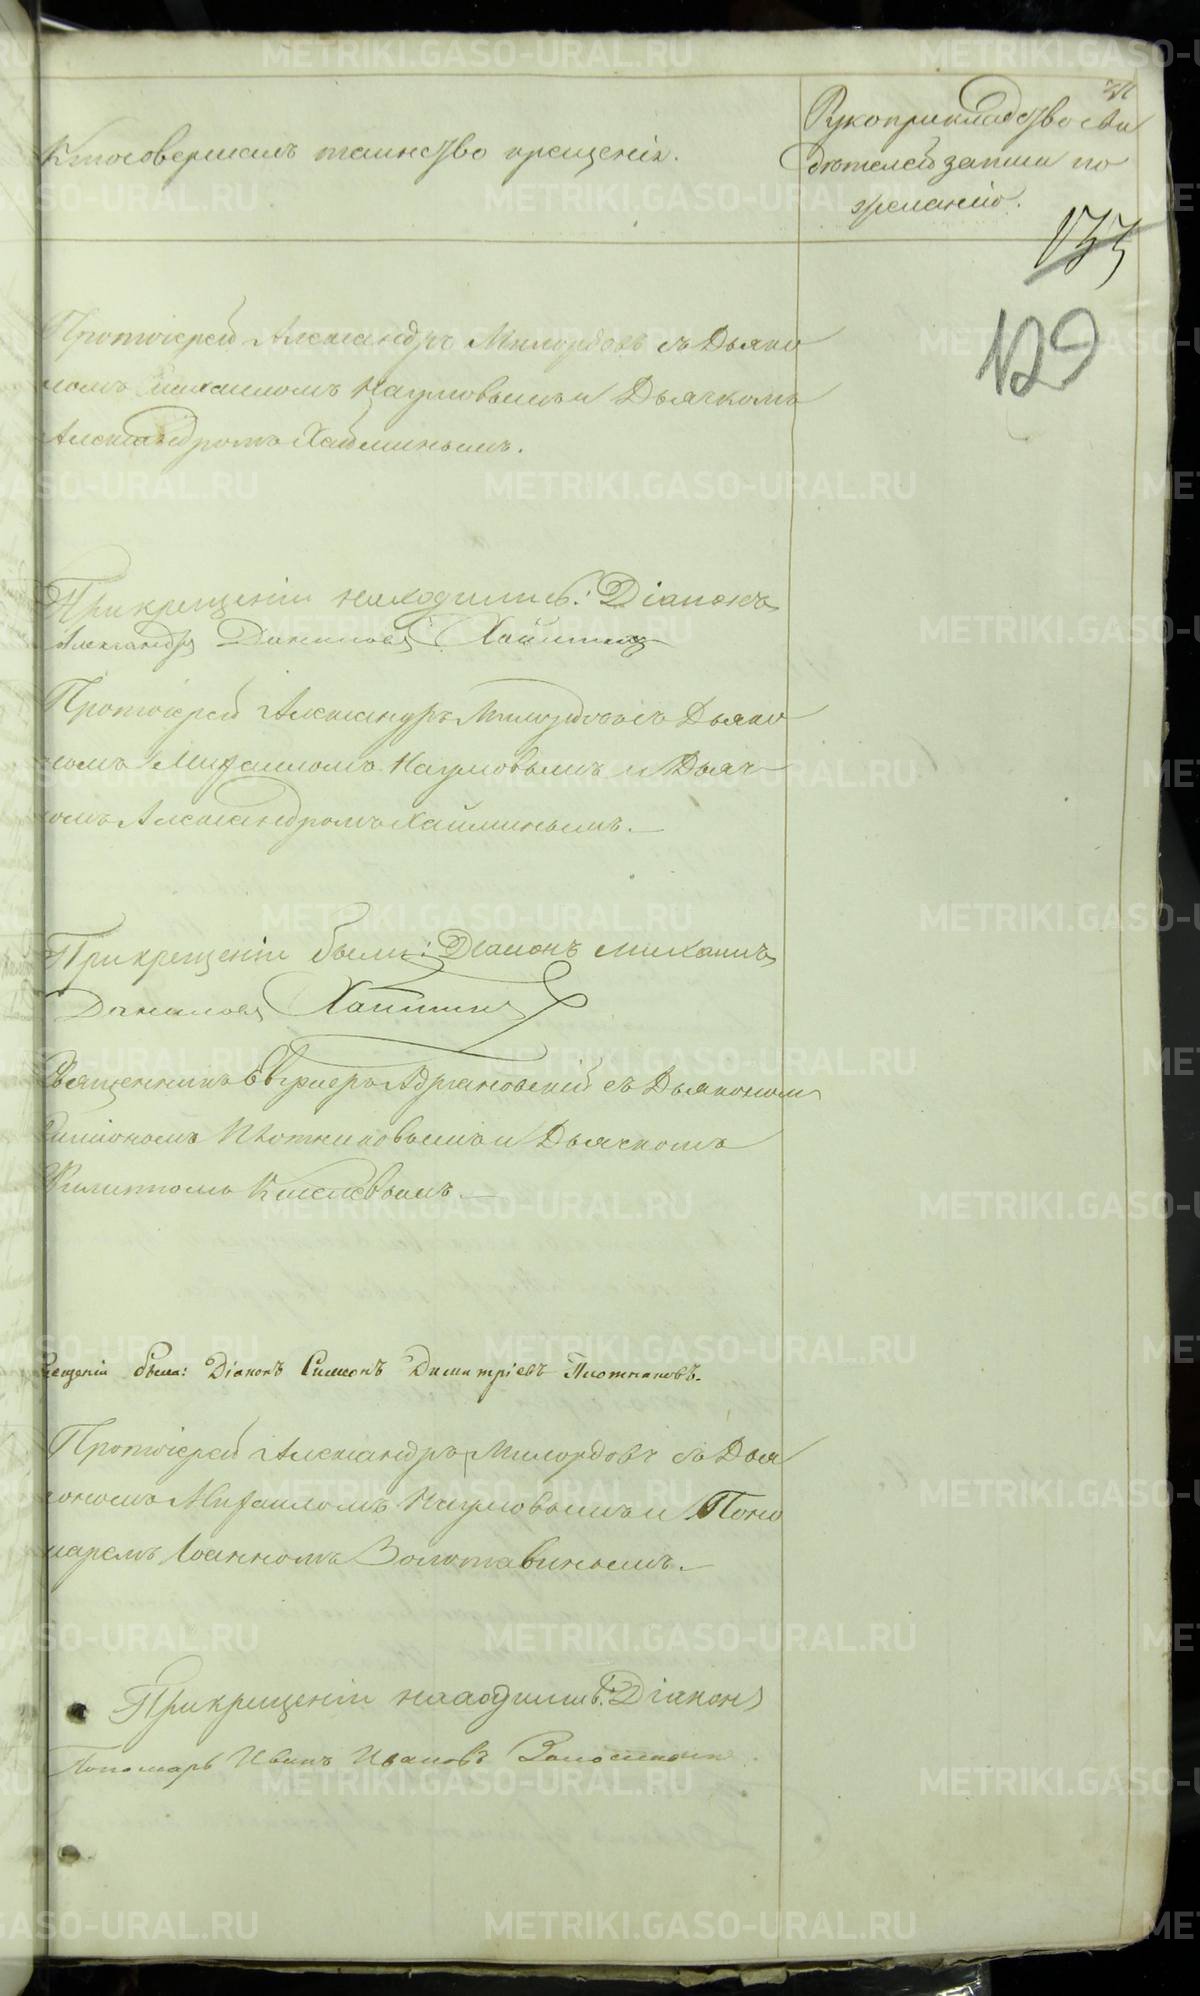 Кто совершалъ таинство крещенія.
Рукоприкладство сви
дѣтелей записи по
желанію.
133
129
Протоіерей Александръ Милордовъ съ Дьяко
номъ Михаиломъ Наумовымъ и Дьячкомъ
Александромъ Хайминымъ.
При крещеніи находились: Діаконъ
Александръ Даниловъ Хайминъ
Протоіерей Александръ Милордовъ съ Дьяко
номъ Михаиломъ Наумовымъ и Дьяч
комъ Александромъ Хайминымъ.
При крещеніи были: Діаконъ Михаилъ
Даниловъ Хайминъ
Священникъ Адріановскій съ Дьякономъ
Симіономъ Плотниковымъ и Дьячкомъ
Филиппомъ Киселевымъ.
крещеніи были: Діаконъ Симеонъ Димитріевъ Плотниковъ.
Протоіерей Александръ Милордовъ съ Дья
кономъ Михаиломъ Наумовымъ и Поно
маремъ Іоанномъ Золотавинымъ.
При крещеніи находились: Діаконъ
Пономарь Иванъ Ивановъ
METRIKI.GASO-URAL.RU